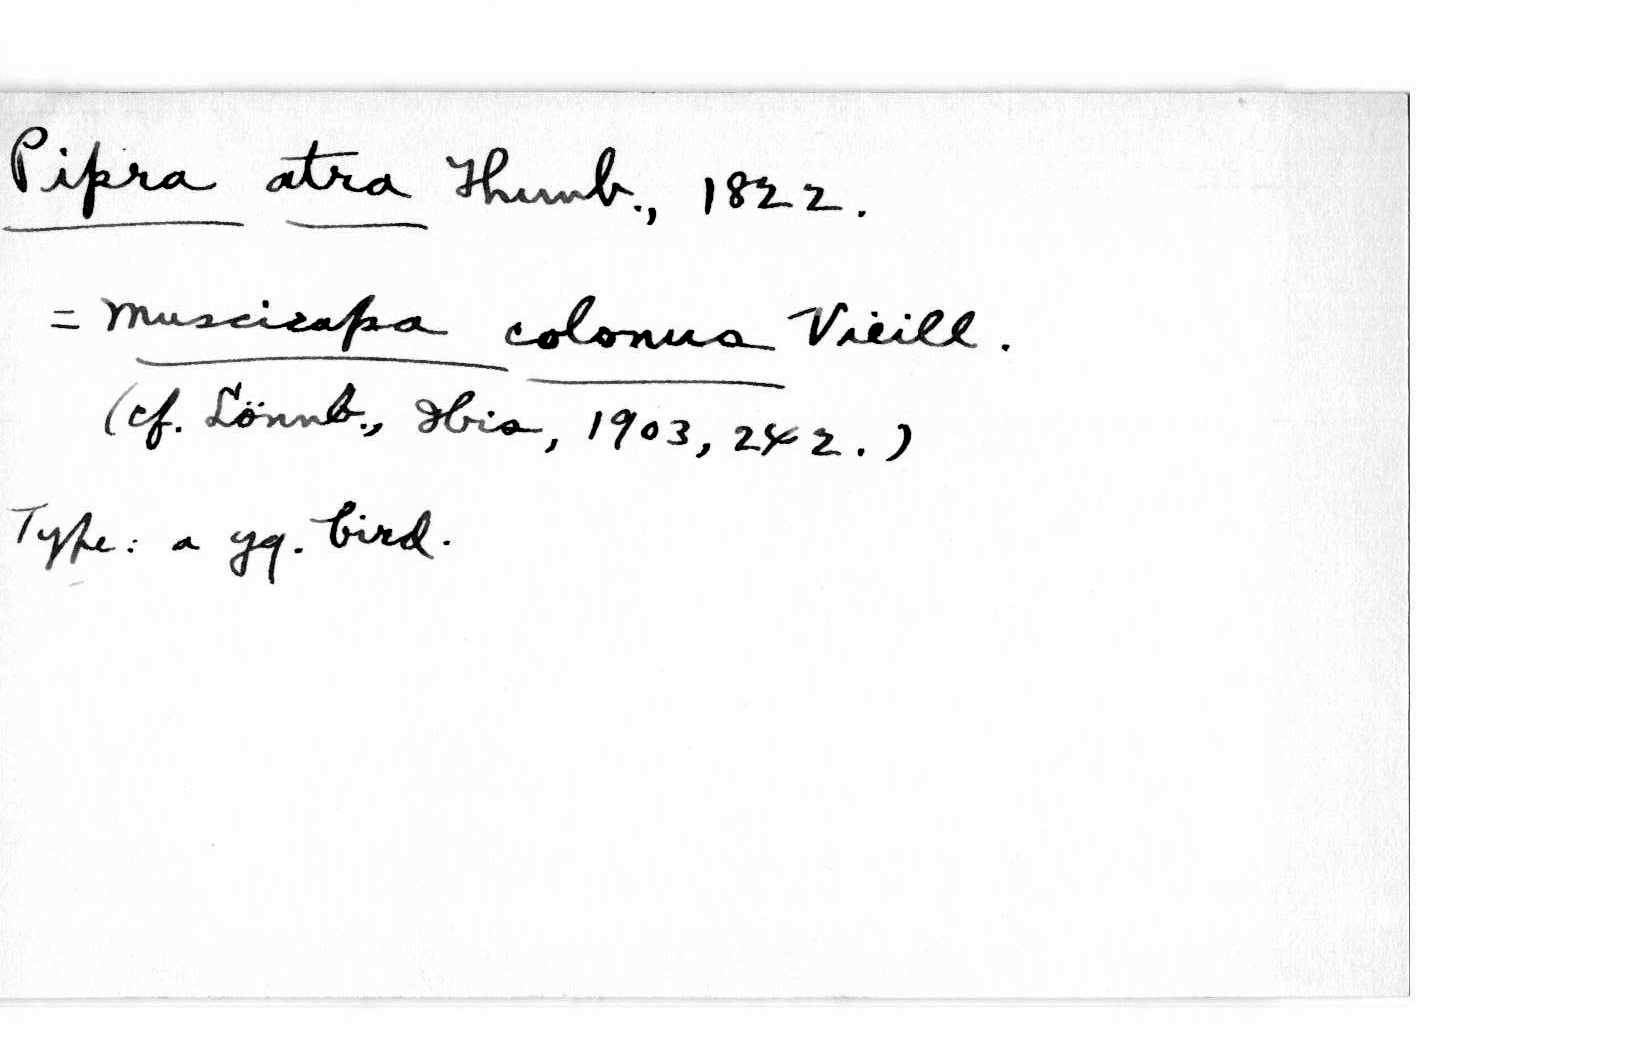 Pipra atra Thunb., 1822.
= Muscicapa colonus Vieill.
(cf. Lönnb., Ibis, 1903, 242.)
Type: a yg. bird.